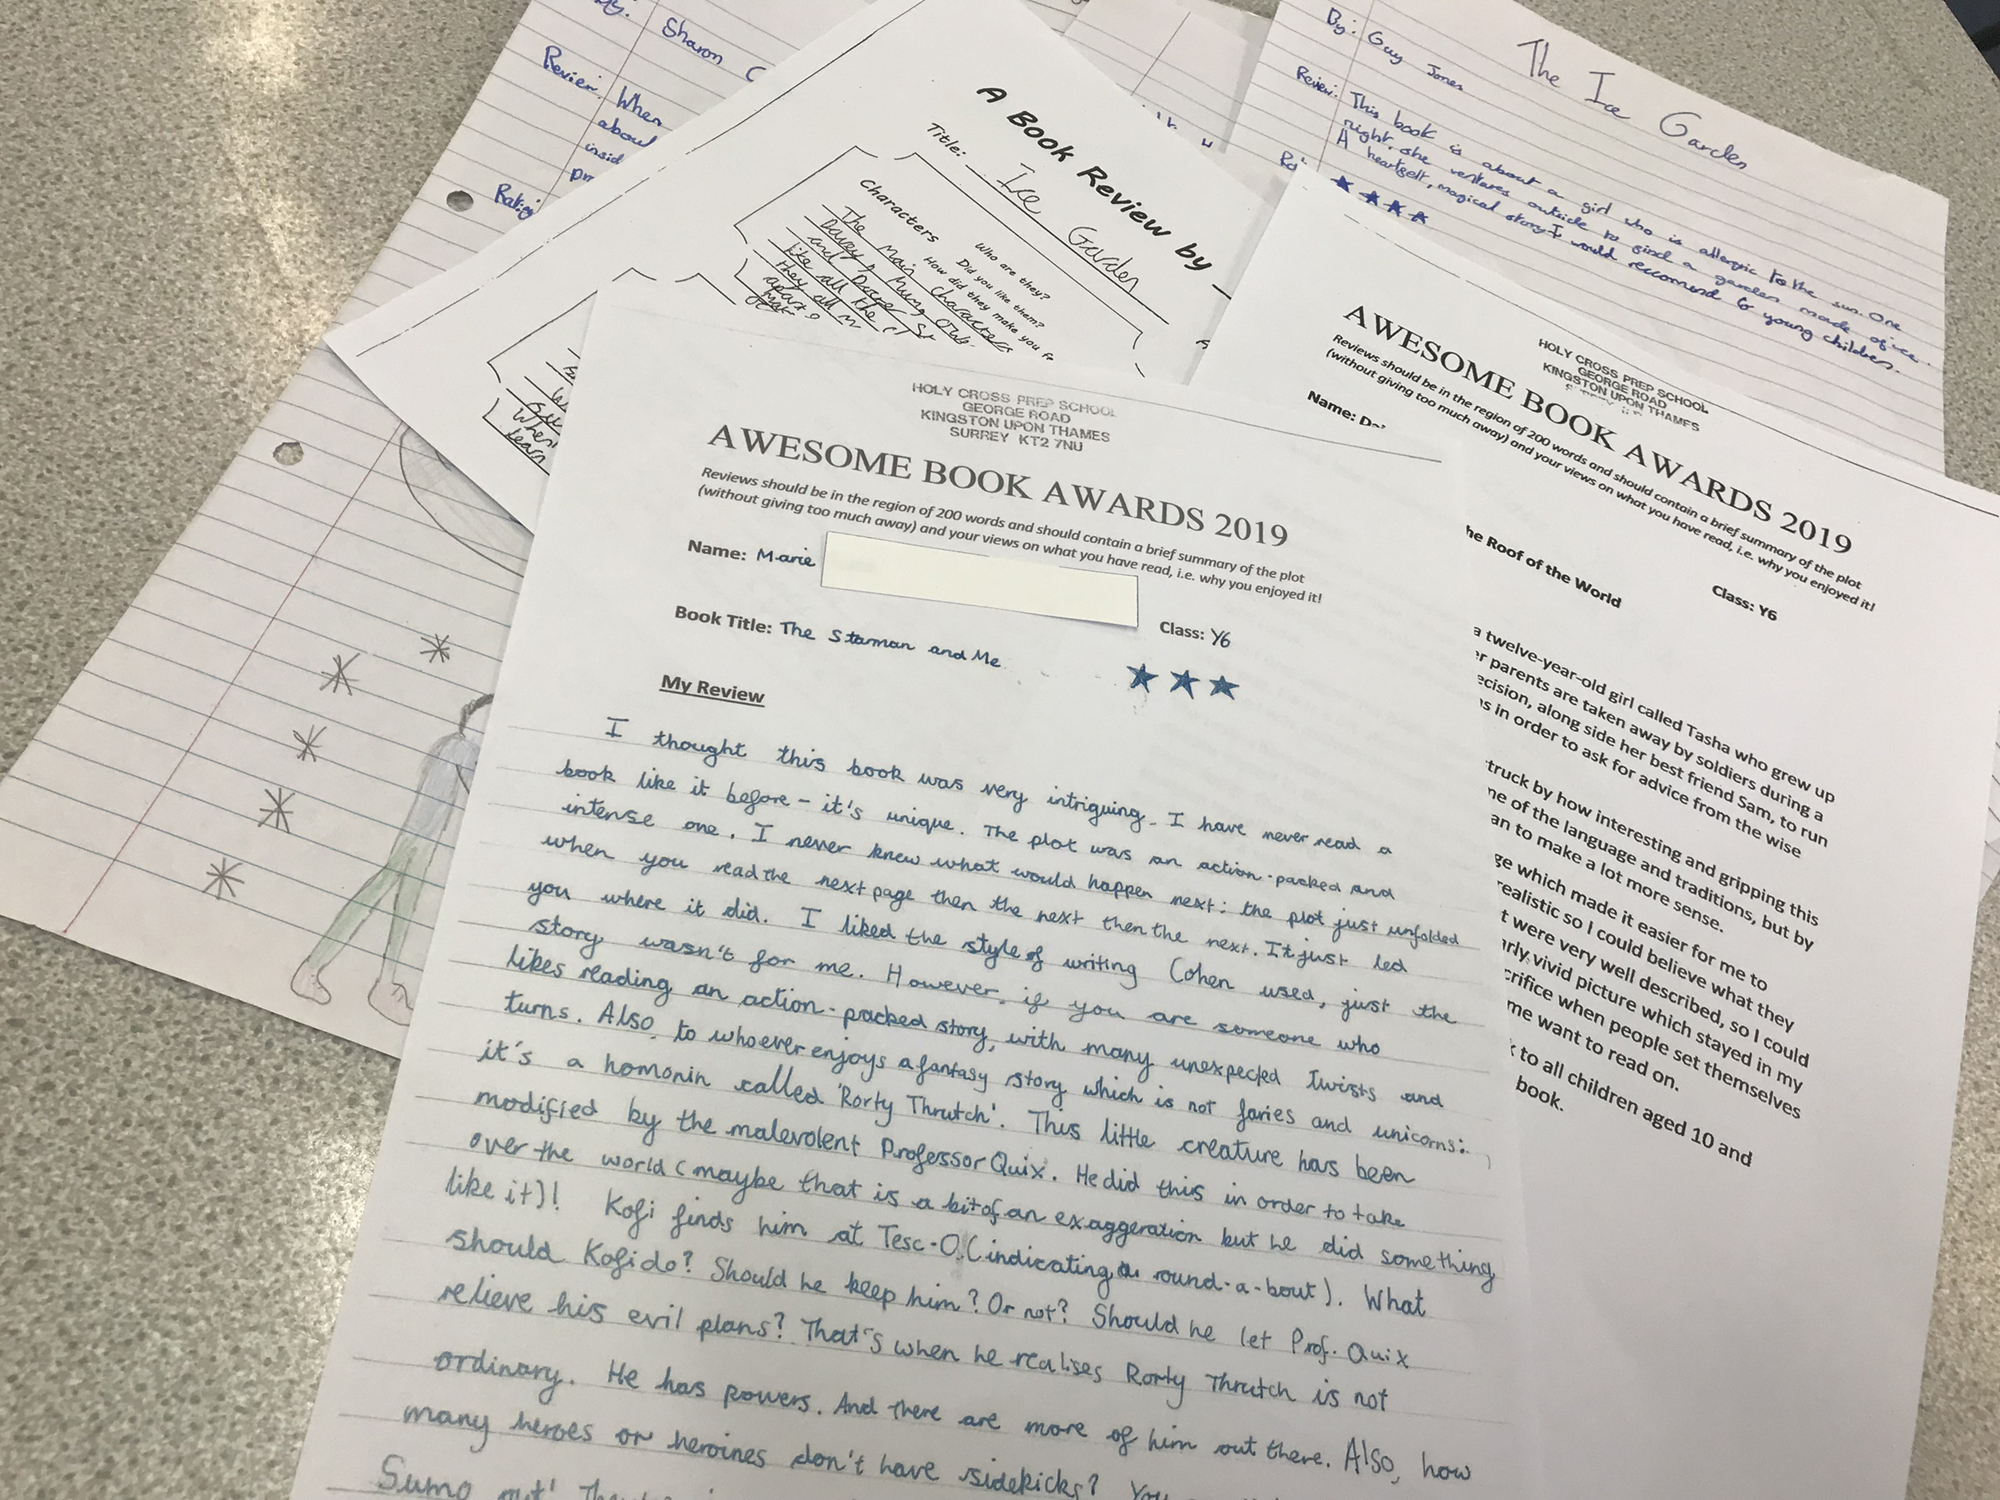 By: Sharon C
Review: When
about
insid
Rating
A Book Review by
Title: Ice Garden
Characters
Who are they?
Did you like them?
How did they make you fe
The main characters
The Ice Garden
By: Guy Jones
Review: This book is about a girl who is allergic to the sun. One
night, she ventures outside to find a garden made of ice.
A heartfelt, magical story. I would reccomend to young children.
HOLY CROSS PREP SCHOOL
GEORGE ROAD
KINGSTON UPON THAMES
AWESOME BOOK AWARDS 2019
Reviews should be in the region of 200 words and should contain a brief summary of the plot
(without giving too much away) and your views on what you have read, i.e. why you enjoyed it!
Name:
he Roof of the World
Class: Y6
a twelve-year-old girl called Tasha who grew up
er parents are taken away by soldiers during a
ecision, along side her best friend Sam, to run
s in order to ask for advice from the wise
truck by how interesting and gripping this
me of the language and traditions, but by
an to make a lot more sense.
ge which made it easier for me to
realistic so I could believe what they
t were very well described, so I could
arly, vivid picture which stayed in my
crifice when people set themselves
me want to read on.
k to all children aged 10 and
book.
HOLY CROSS PREP SCHOOL
GEORGE ROAD
KINGSTON UPON THAMES
SURREY KT2 7NU
AWESOME BOOK AWARDS 2019
Reviews should be in the region of 200 words and should contain a brief summary of the plot
(without giving too much away) and your views on what you have read, i.e. why you enjoyed it!
Name: Marie
Class: Y6
Book Title: The Starman and Me
My Review
I thought this book was very intriguing. I have never read a
book like it before - it's unique. The plot was an action-packed and
intense one. I never knew what would happen next: the plot just unfolded
when you read the next page then the next then the next. It just led
you where it did. I liked the style of writing Cohen used, just the
story wasn't for me. However, if you are someone who
likes reading an action-packed story, with many unexpected twists and
turns. Also, to whoever enjoys a fantasy story which is not faries and unicorns:
it's a homonin called 'Rorty Thrutch'. This little creature has been
modified by the malevolent Professor Quix. He did this in order to take
over the world (maybe that is a bit of an exaggeration but he did something
like it)! Kofi finds him at Tesc-O (indicating a round-a-bout). What
should Kofi do? Should he keep him? Or not? Should he let Prof. Quix
relieve his evil plans? That's when he realises Rorty Thrutch is not
ordinary. He has powers. And there are more of him out there. Also, how
many heroes or heroines don't have sidekicks?
Sumo